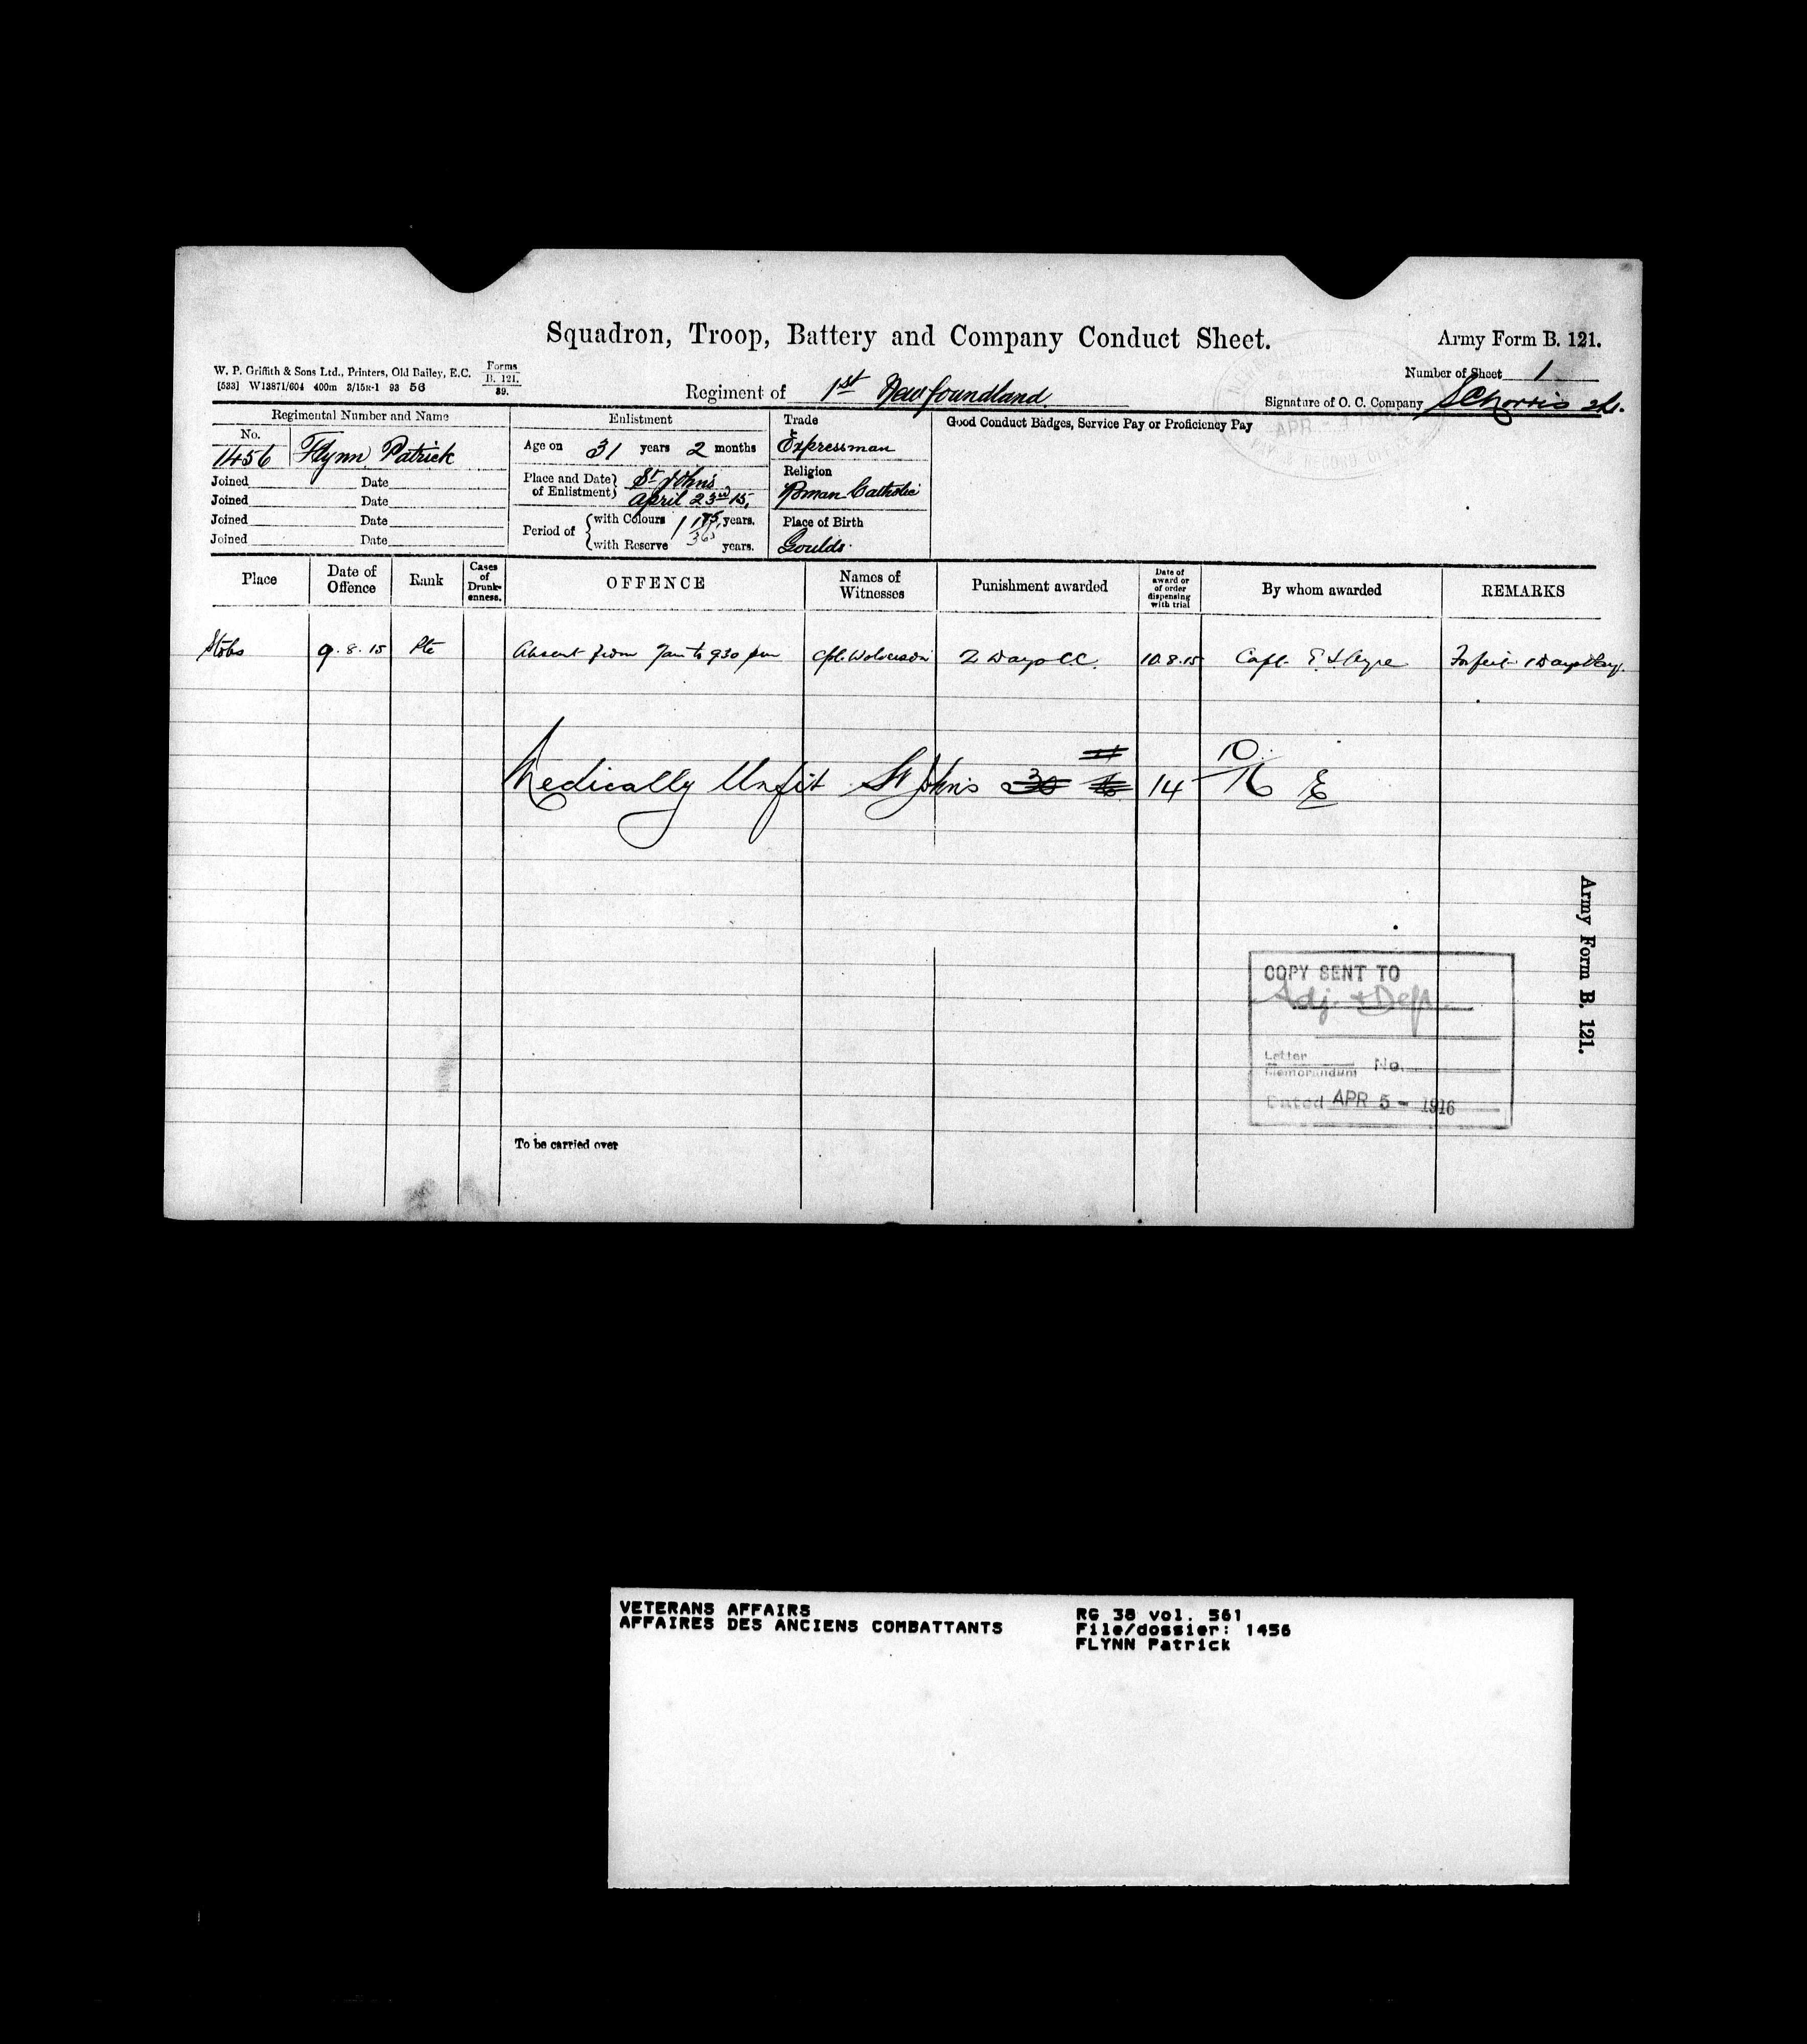 Squadron, Troop, Battery and Company Conduct Sheet.
Army Form B. 121.
W. P. Griffith & Sons Ltd., Printers, Old Bailey, E.C.
Forms
B. 121.
39.
[533] W13871/604 400m 3/15 93 56
Number of Sheet 1
Regiment of 1st Newfoundland
Signature of O. C. Company
Regimental Number and Name
No.
1456 Flynn Patrick
Joined Date
Joined Date
Joined Date
Joined Date
Enlistment
Age on 31 years 2 months
Place and Date of Enlistment St Johns
April 23rd 15,
Period of with Colours 1 years.
with Reserve years.
Trade
Expressman
Religion
Roman Catholic
Place of Birth
Goulds.
Good Conduct Badges, Service Pay or Proficiency Pay
APR
Place
Date of Offence
Rank
Cases of Drunkenness.
OFFENCE
Names of Witnesses
Punishment awarded
Date of award or of order dispensing with trial
By whom awarded
REMARKS
Stobs 9.8.15 Pte Absent from 7am to 930 pm 2 Days CC. 10.8.15 Capt. Ayre Forfeit 1 Days Pay.
Medically Unfit St Johns 14 10/16
COPY SENT TO
Adj. & Dept.
Letter
Memorandum No.
Dated APR 5 - 1916
Army Form B. 121.
To be carried over
VETERANS AFFAIRS
AFFAIRES DES ANCIENS COMBATTANTS
RG 38 vol. 561
File/dossier: 1456
FLYNN Patrick